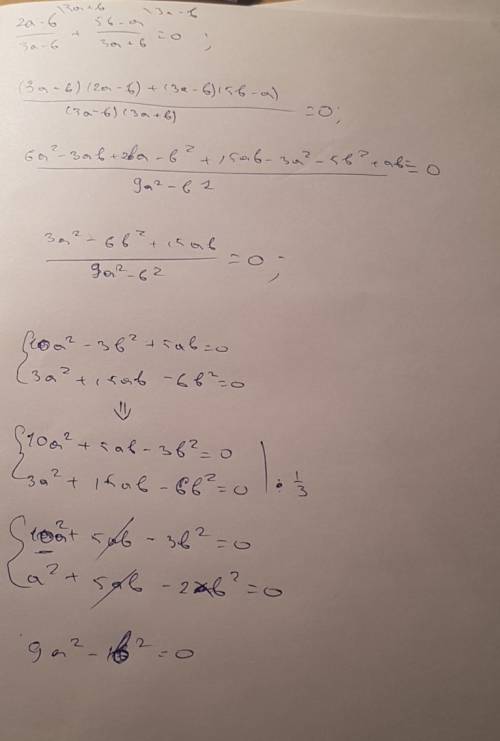 \3a+b \3a-b
(2a-b)/(3a-b) + (5b-a)/(3a+b) = 0 ;
((3a-b)(2a-b) + (3a-b)(5b-a))/((3a-b)(3a+b)) = 0;
(6a² - 3ab + 2ba - b² + 15ab - 3a² - 5b² + ab)/(9a² - b²) = 0
(3a² - 6b² + 15ab)/(9a² - b²) = 0 ;
{ 10a² - 3b² + 5ab = 0
3a² + 15ab - 6b² = 0
⇓
{ 10a² + 5ab - 3b² = 0
3a² + 15ab - 6b² = 0 | : 1/3
{ 10a² + 5ab - 3b² = 0
a² + 5ab - 2b² = 0
9a² - b² = 0